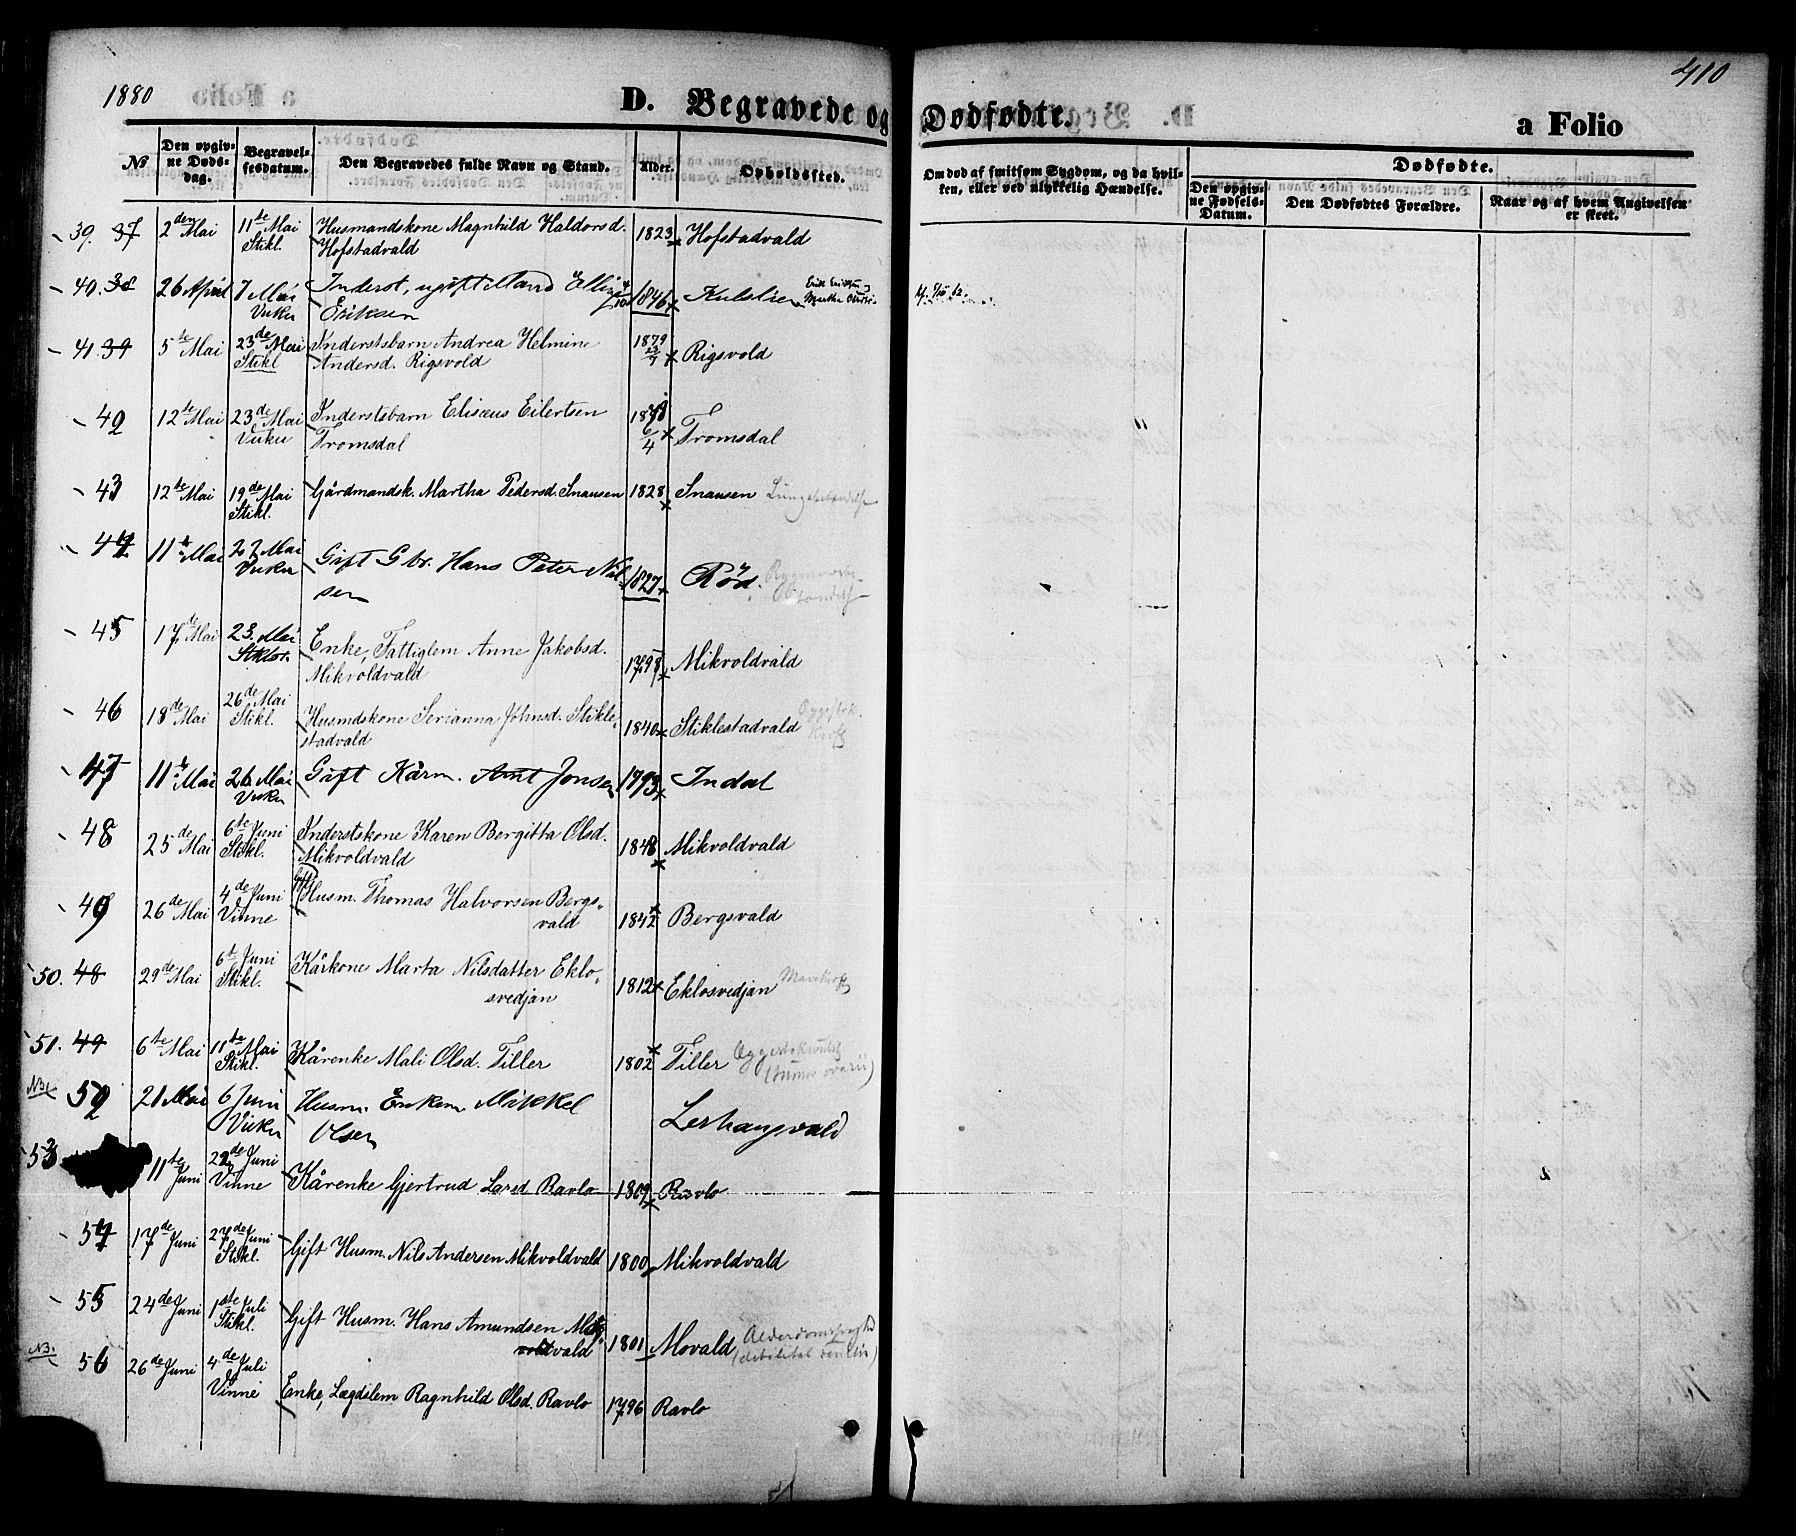 1880
D. Begravede og Dødfødte.
a Folio
410
No
Den opgivne Døds-dag.
Begravelsesdatum.
Den Begravedes fulde Navn og Stand.
Alder.
Opholdssted.
Om død af smitsom Sygdom, og da hvilken, eller ved ulykkelig Hændelse.
Dødfødte.
Den opgivne Fødsels-Datum.
Den Dødfødtes Forældre.
Naar og af hvem Angivelsen er skeet.
39. 37 2den Mai 11te Mai Stikl. Husmandskone Magnhild Haldorsd. Hofstadvald 1823 Hofstadvald
40. 38 26 April 7 Mai Vuku Inderst, ugift Mand Elling Eriksen 1846
41. 39 5te Mai 23de Mai Stikl Inderstsbarn Andrea Helmine Andersd. Rigsvold 1879 23/7 Rigsvold
42 12te Mai 23de Mai Vuku Inderstsbarn Elisæus Eilertsen Tromsdal 6/4 Tromsdal
43 12te Mai 19de Mai Stikl. Gårdmandsk. Martha Pedersd. Snausen 1828 Snausen
44 11te Mai 22 Mai Vuku Gift Gbr. Hans Peter Nilsen 1827 Rød.
45 17de Mai 23. Mai Enke, Fattiglem Anne Jakobsd. Mikvoldvald 1798 Mikvoldvald
46 18de Mai 26de Mai Stikl. Husmdskone Serianna Johnsd. Stiklestadvald 1840 Stiklestadvald
47 11te Mai 26 Mai Vuku Gift Kårm. Arnt Jonsen 1793 Indal
48 25de Mai 6te Juni Stikl. Inderstskone Karen Bergitta Olsd. Mikvoldvald 1848 Mikvoldvald
49 26de Mai 4de Juni Vinne Gift Husm. Thomas Halvorsen Bergsvald 1842 Bergsvald
50. 48 29de Mai 6te Juni Stikl. Kårkone Marta Nilsdatter Eklosvedjan 1812 Eklosvedjan
51. 49 6te Mai 11te Mai Stikl. Kårenke Mali Olsd. Tiller 1802 Tiller (tumor ovarii)
NB 52 21 Mai 6 Juni Vuku Husm. Enkem Mikkel Olsen
53 11te Juni 22de Juni Vinne Kårenke Gjertrud Larsd Ravlo 1809 Ravlo
54 17de Juni 27de Juni Stikl. Gift Husm. Nils Andersen Mikvoldvald 1800 Mikvoldvald
55 24de Juni 1ste Juli Stikl. Gift Husm. Hans Amundsen 1801 Movald
NB. 56 26de Juni 4de Juli Vinne Enke, Lægdslem Ragnhild Olsd. Ravlo 1796 Ravlo